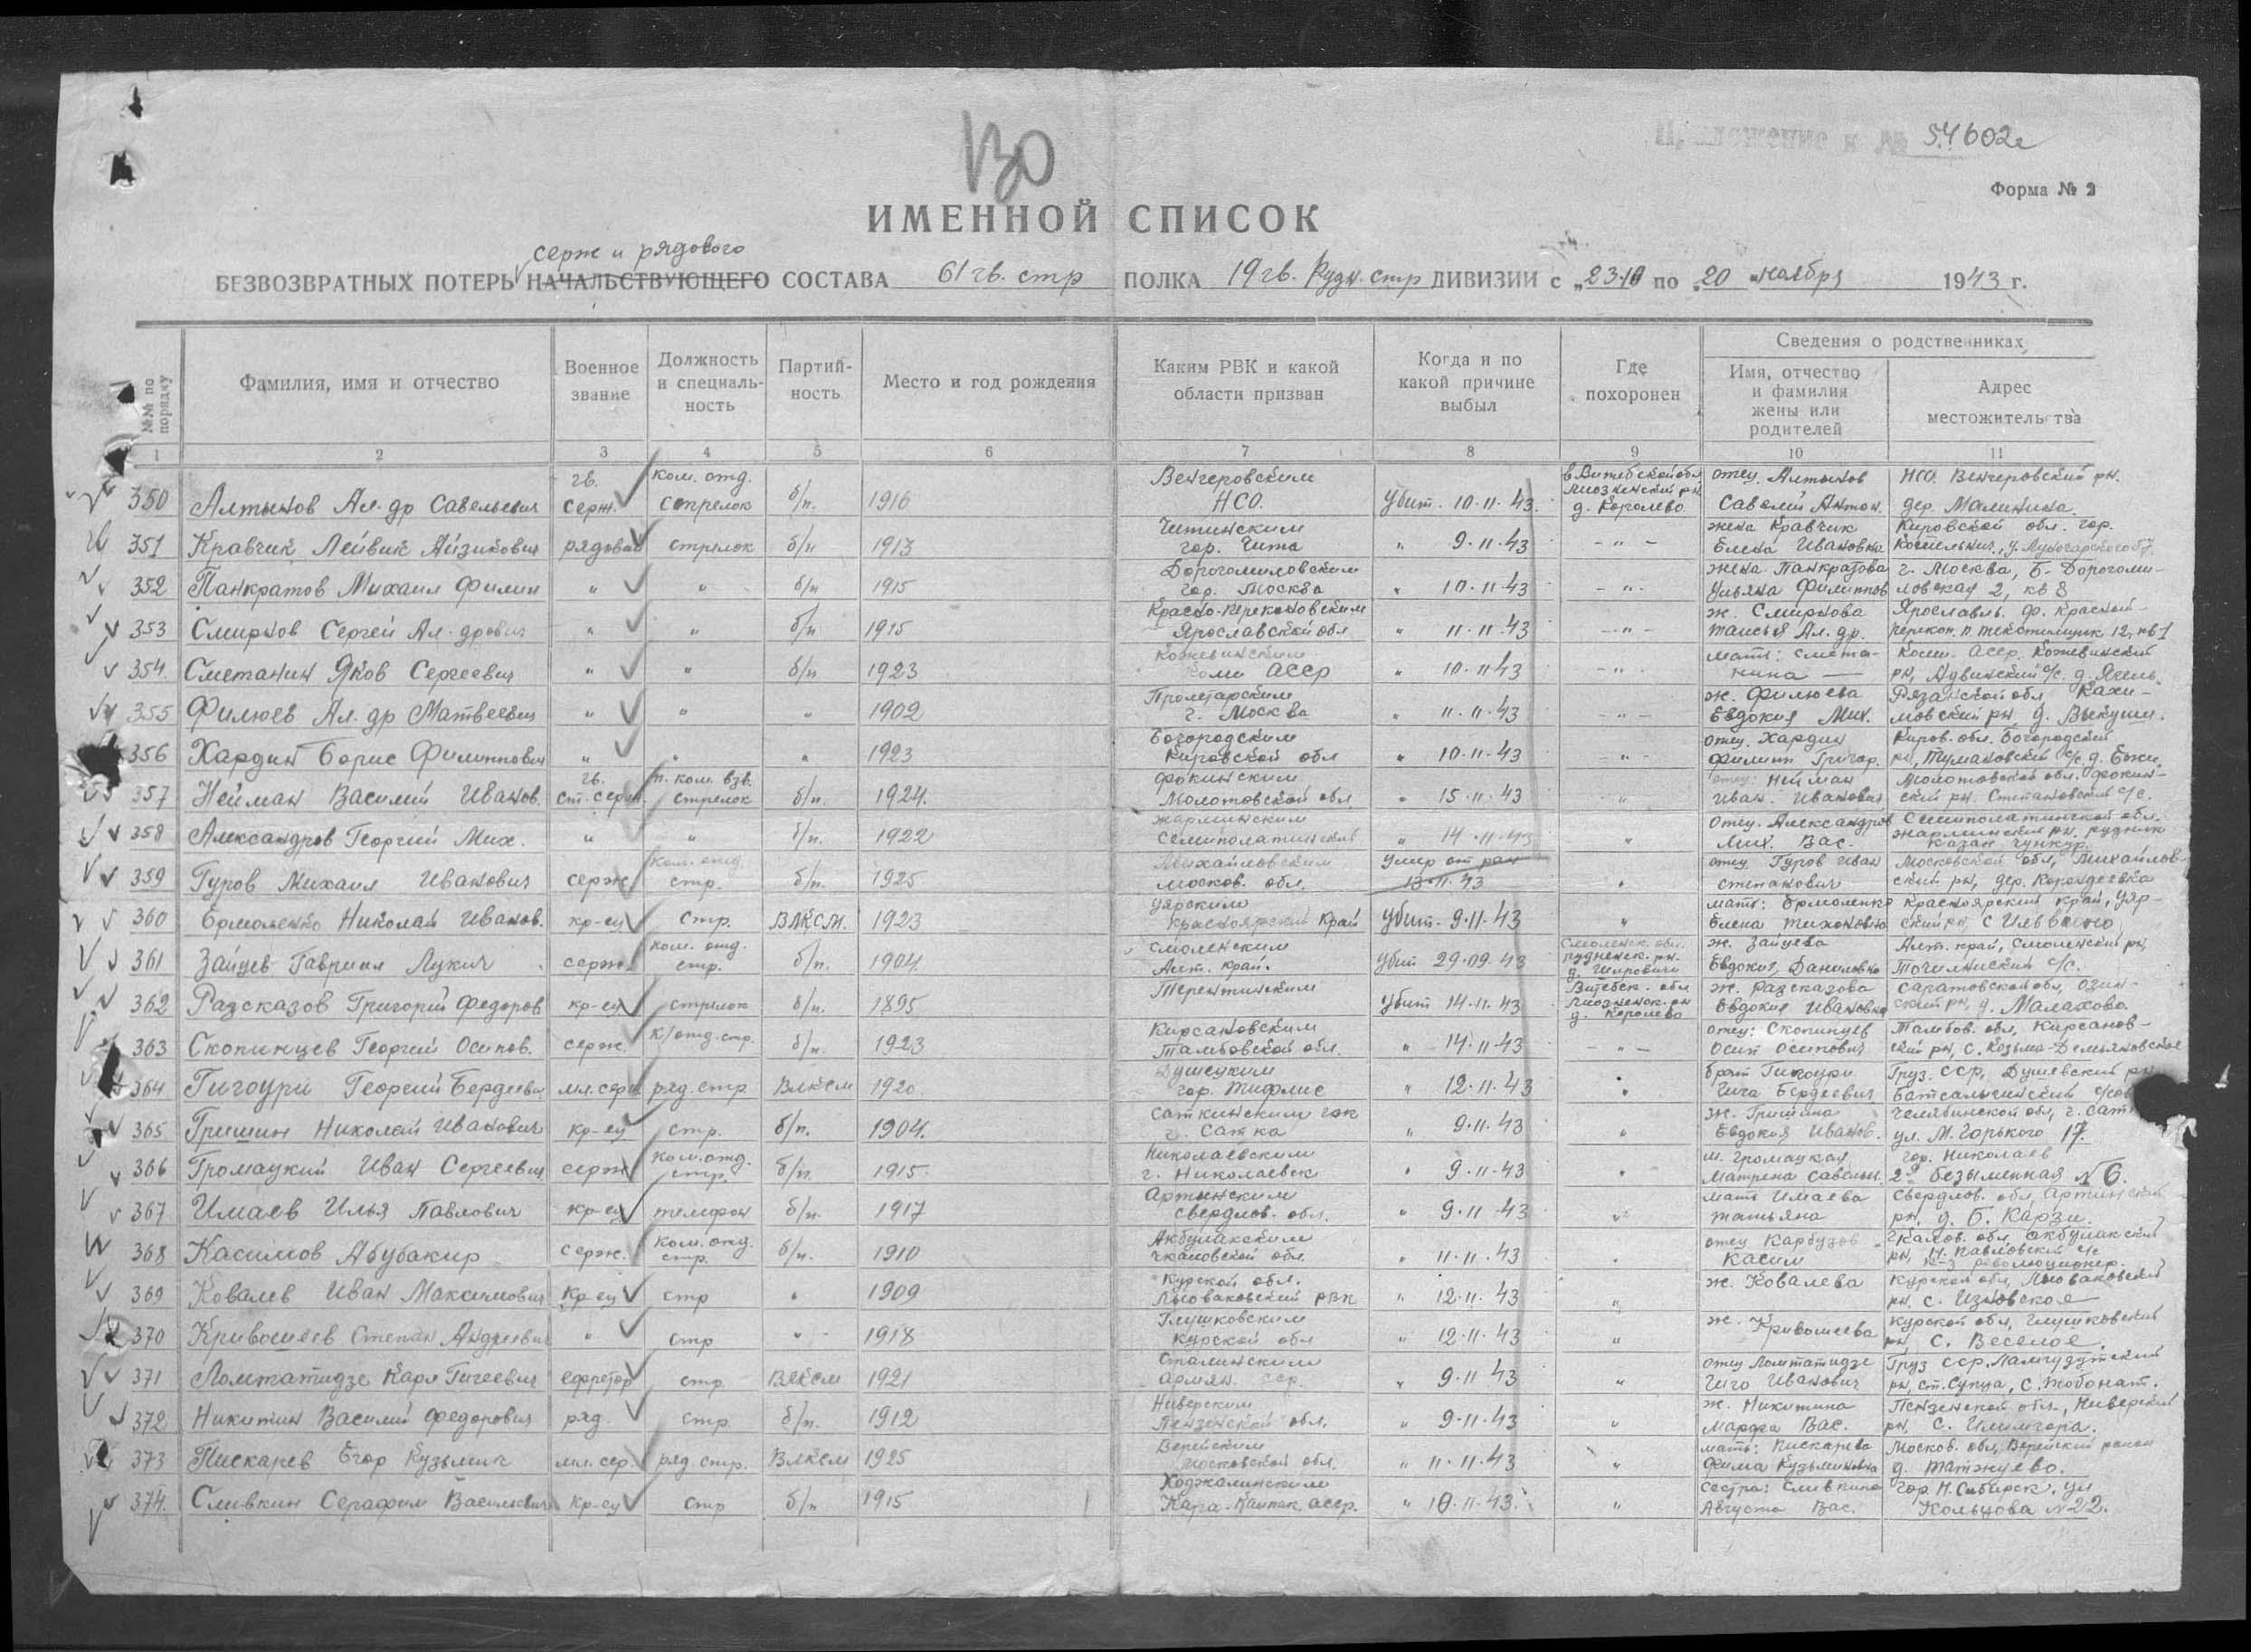 130
Приложение к № 54602с
Форма № 2
ИМЕННОЙ СПИСОК
серж и рядового
БЕЗВОЗВРАТНЫХ ПОТЕРЬ НАЧАЛЬСТВУЮЩЕГО СОСТАВА 61 гв. стр ПОЛКА 19 гв. Рудн. стр ДИВИЗИИ с „23.10 по „20 „ ноября 1943 г.
№№ по порядку
Фамилия, имя и отчество
Военное звание
Должность и специальность
Партийность
Место и год рождения
Каким РВК и какой области призван
Когда и по какой причине выбыл
Где похоронен
Сведения о родственниках
Имя, отчество и фамилия жены или родителей
Адрес местожительства
1 2 3 4 5 6 7 8 9 10 11
350 Алтынов Ал-др Савельевич гв. серж. ком. отд. стрелок б/п. 1916 Венгеровским НСО. Убит. 10.11.43. в Витебской обл Лиозненский рн д. Королево отец. Алтынов Савелий Антон. НСО. Венгеровский рн. дер. Малинина.
351 Кравчик Лейвик Айзикович рядовой стрелок б/п 1913 Читинским гор. Чита " 9.11.43 - " - жена Кравчик Елена Ивановна Кировской обл. гор. Котельнич, у. Луначарского 57.
352 Панкратов Михаил Филип " " б/п 1915 Дорогомиловским гор. Москва " 10.11.43 - " - жена Панкратова Ульяна Филиппов г. Москва, Б. Дорогомиловская 2, кв 8
353 Смирнов Сергей Ал-дрович " " б/п 1915 Красно-перекоповским Ярославской обл " 11.11.43 - " - ж. Смирнова Таисья Ал. др. Ярославль. ф. Красный-перекоп. п текстильщик 12, кв 1
354. Сметанин Яков Сергеевич " " б/п 1923 Кожевинским Коми АССР " 10.11.43 - " - мать: Сметанина Коми. АССР. Кожевинский рн,
355 Филюев Ал. др Матвеевич " " " 1902 Пролетарским г. Москва " 11.11.43 - " - ж. Филюева Евдокия Мих. Рязанской обл
356 Хардин Борис Филиппович " " " 1923 Богородским Кировской обл " 10.11.43 - " - отец. Хардин Филипп Григор. Киров. обл. Богородский рн, Тумановский с/с.
357 Нейман Василий Иванов. гв. ст. серж. п. ком. взв. стрелок б/п. 1924. Фокинским Молотовской обл " 15.11.43 " отец: Нейман Иван. Иванович Молотовской обл. Фокинский рн. Степановский с/с.
358 Александров Георгий Мих. " " б/п. 1922 Жарминским Семипалатинской " 14.11.43 " Отец. Александров Мих. Вас. Семипалатинской обл. Жарминский рн. рудник
359 Гуров Михаил Иванович серж. ком. отд. стр. б/п. 1925 Михайловским Москов. обл. Умер от ран 13.11.43 " отец Гуров Иван Степанович Московской обл, Михайловский рн, дер.
360 Ермоленко Николай Иванов. кр-ец стр. ВЛКСМ. 1923 Уярским Красноярский край Убит. 9.11.43 " мать: Ермоленко Елена Тихоновна Красноярский край, Уярский рн,
361 Зайцев Гавриил Лукич серж. ком. отд. стр. б/п. 1904. Смоленским Алт. край. Убит 29.09.43 Смоленск. обл. Руднянск. рн. ж. Зайцева Евдокия, Даниловна Алт. край, Смоленский рн, Точилинский с/с.
362 Разсказов Григорий Федоров кр-ец стрелок б/п. 1895 Убит 14.11.43 Витебск. обл Лиозненск. рн д. Королево ж. Разсказова Евдокия Ивановна Саратовской обл, Озинский рн, д. Малахово.
363 Скопинцев Георгий Осипов. серж. к/отд. стр. б/п. 1923 Кирсановским Тамбовской обл. " 14.11.43 - " - отец: Скопинцев Осип Осипович Тамбов. обл, Кирсановский рн, с. Козьма-Демьяновское
364 Гигоури Георгий Бердеевич мл. серж ряд. стр ВЛКСМ 1920 Душецким гор. Тифлис " 12.11.43 " брат Гигоури Гига Бердеевич Груз. ССР, Душевский рн
365 Гришин Николай Иванович кр-ец стр. б/п. 1904. Саткинским г. Сатка " 9.11.43 " ж. Гришина Евдокия Иванов. Челябинской обл, г. Сат ул. М. Горького 17.
366 Громацкий Иван Сергеевич серж ком. отд. стр. б/п. 1915 Николаевским г. Николаевск " 9.11.43 " Громацкая Матрена Савельев. гор. Николаев 2я Безыменная №6.
367 Имаев Илья Павлович кр-ец телефон б/п. 1917 Артинским Свердлов. обл. " 9.11.43 " мать Имаева Татьяна Свердлов. обл, Артинский рн, д. Б. Карзи.
368 Касимов Абубакир серж. ком. отд. стр. б/п. 1910 Акбулакским Чкаловской обл. " 11.11.43 " отец Карбузов Касим Чкалов. обл, Акбулакский рн, Н. Павловский с/с к-з революционер.
369 Ковалев Иван Максимович кр-ец стр " 1909 Курской обл. РВК " 12.11.43 " ж. Ковалева Курской обл, рн. с. Изновское
370 Кривошеев Степан Андреевич " стр " 1918 Глушковским Курской обл " 12.11.43 " ж. Кривошеева Курской обл, Глушковский рн, с. Веселое.
371 Ломтатидзе Карл Гигеевич ефрейтор стр ВЛКСМ 1921 Сталинским Армян. ССР. " 9.11.43 " отец Ломтатидзе Гиго Иванович Груз ССР,
372 Никитин Василий Федорович ряд. стр. б/п. 1912 Ниверским Пензенской обл. " 9.11.43 " ж. Никитина Марфа Вас. Пензенской обл, Ниверский рн, с. Илимгора.
373 Пискарев Егор Кузьмич мл. сер. ряд. стр. ВЛКСМ 1925 Верейским Московской обл. " 11.11.43 " мать: Пискарева Фима Кузьминовна Москов. обл, Верейский район д.
374. Сливкин Серафим Васильевич кр-ец стр б/п 1915 Ходжалинским Кара-Калпак АССР. " 10.11.43. " сестра: Сливкина Августа Вас. гор. Н. Сибирск, ул Кольцова №22.